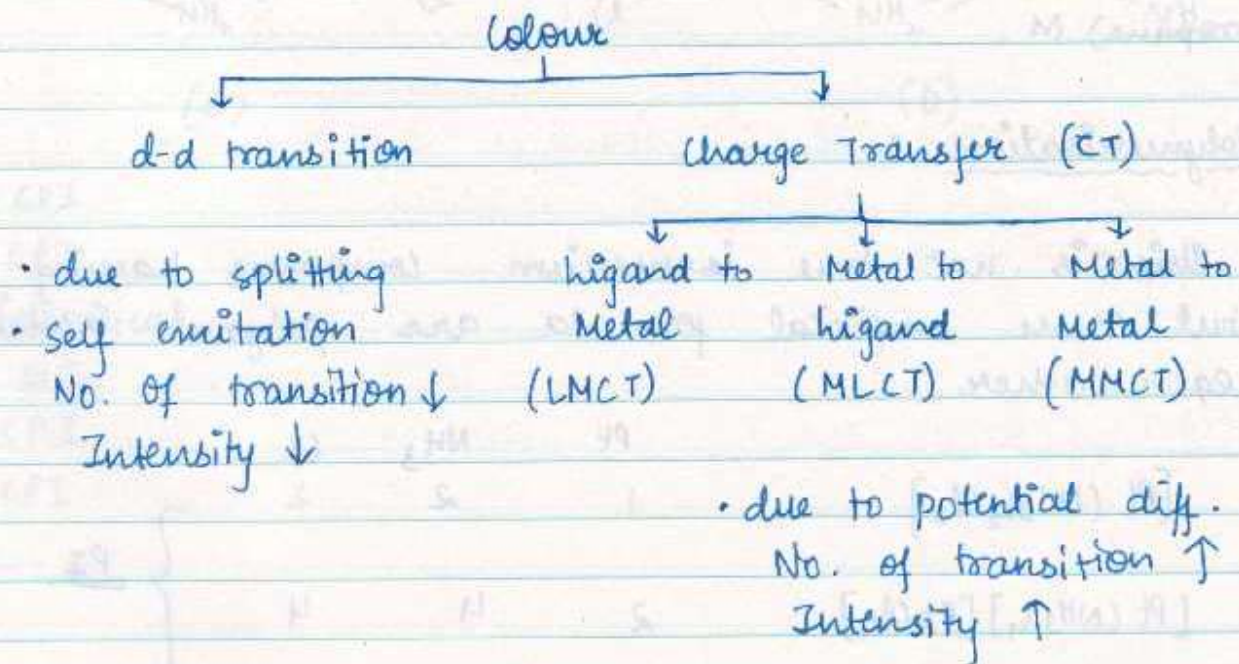 Colour
d-d transition
Charge Transfer (CT)
• due to splitting
• self emitation
No. of transition ↓
Intensity ↓
Ligand to Metal (LMCT)
Metal to Ligand (MLCT)
Metal to Metal (MMCT)
• due to potential diff.
No. of transition ↑
Intensity ↑